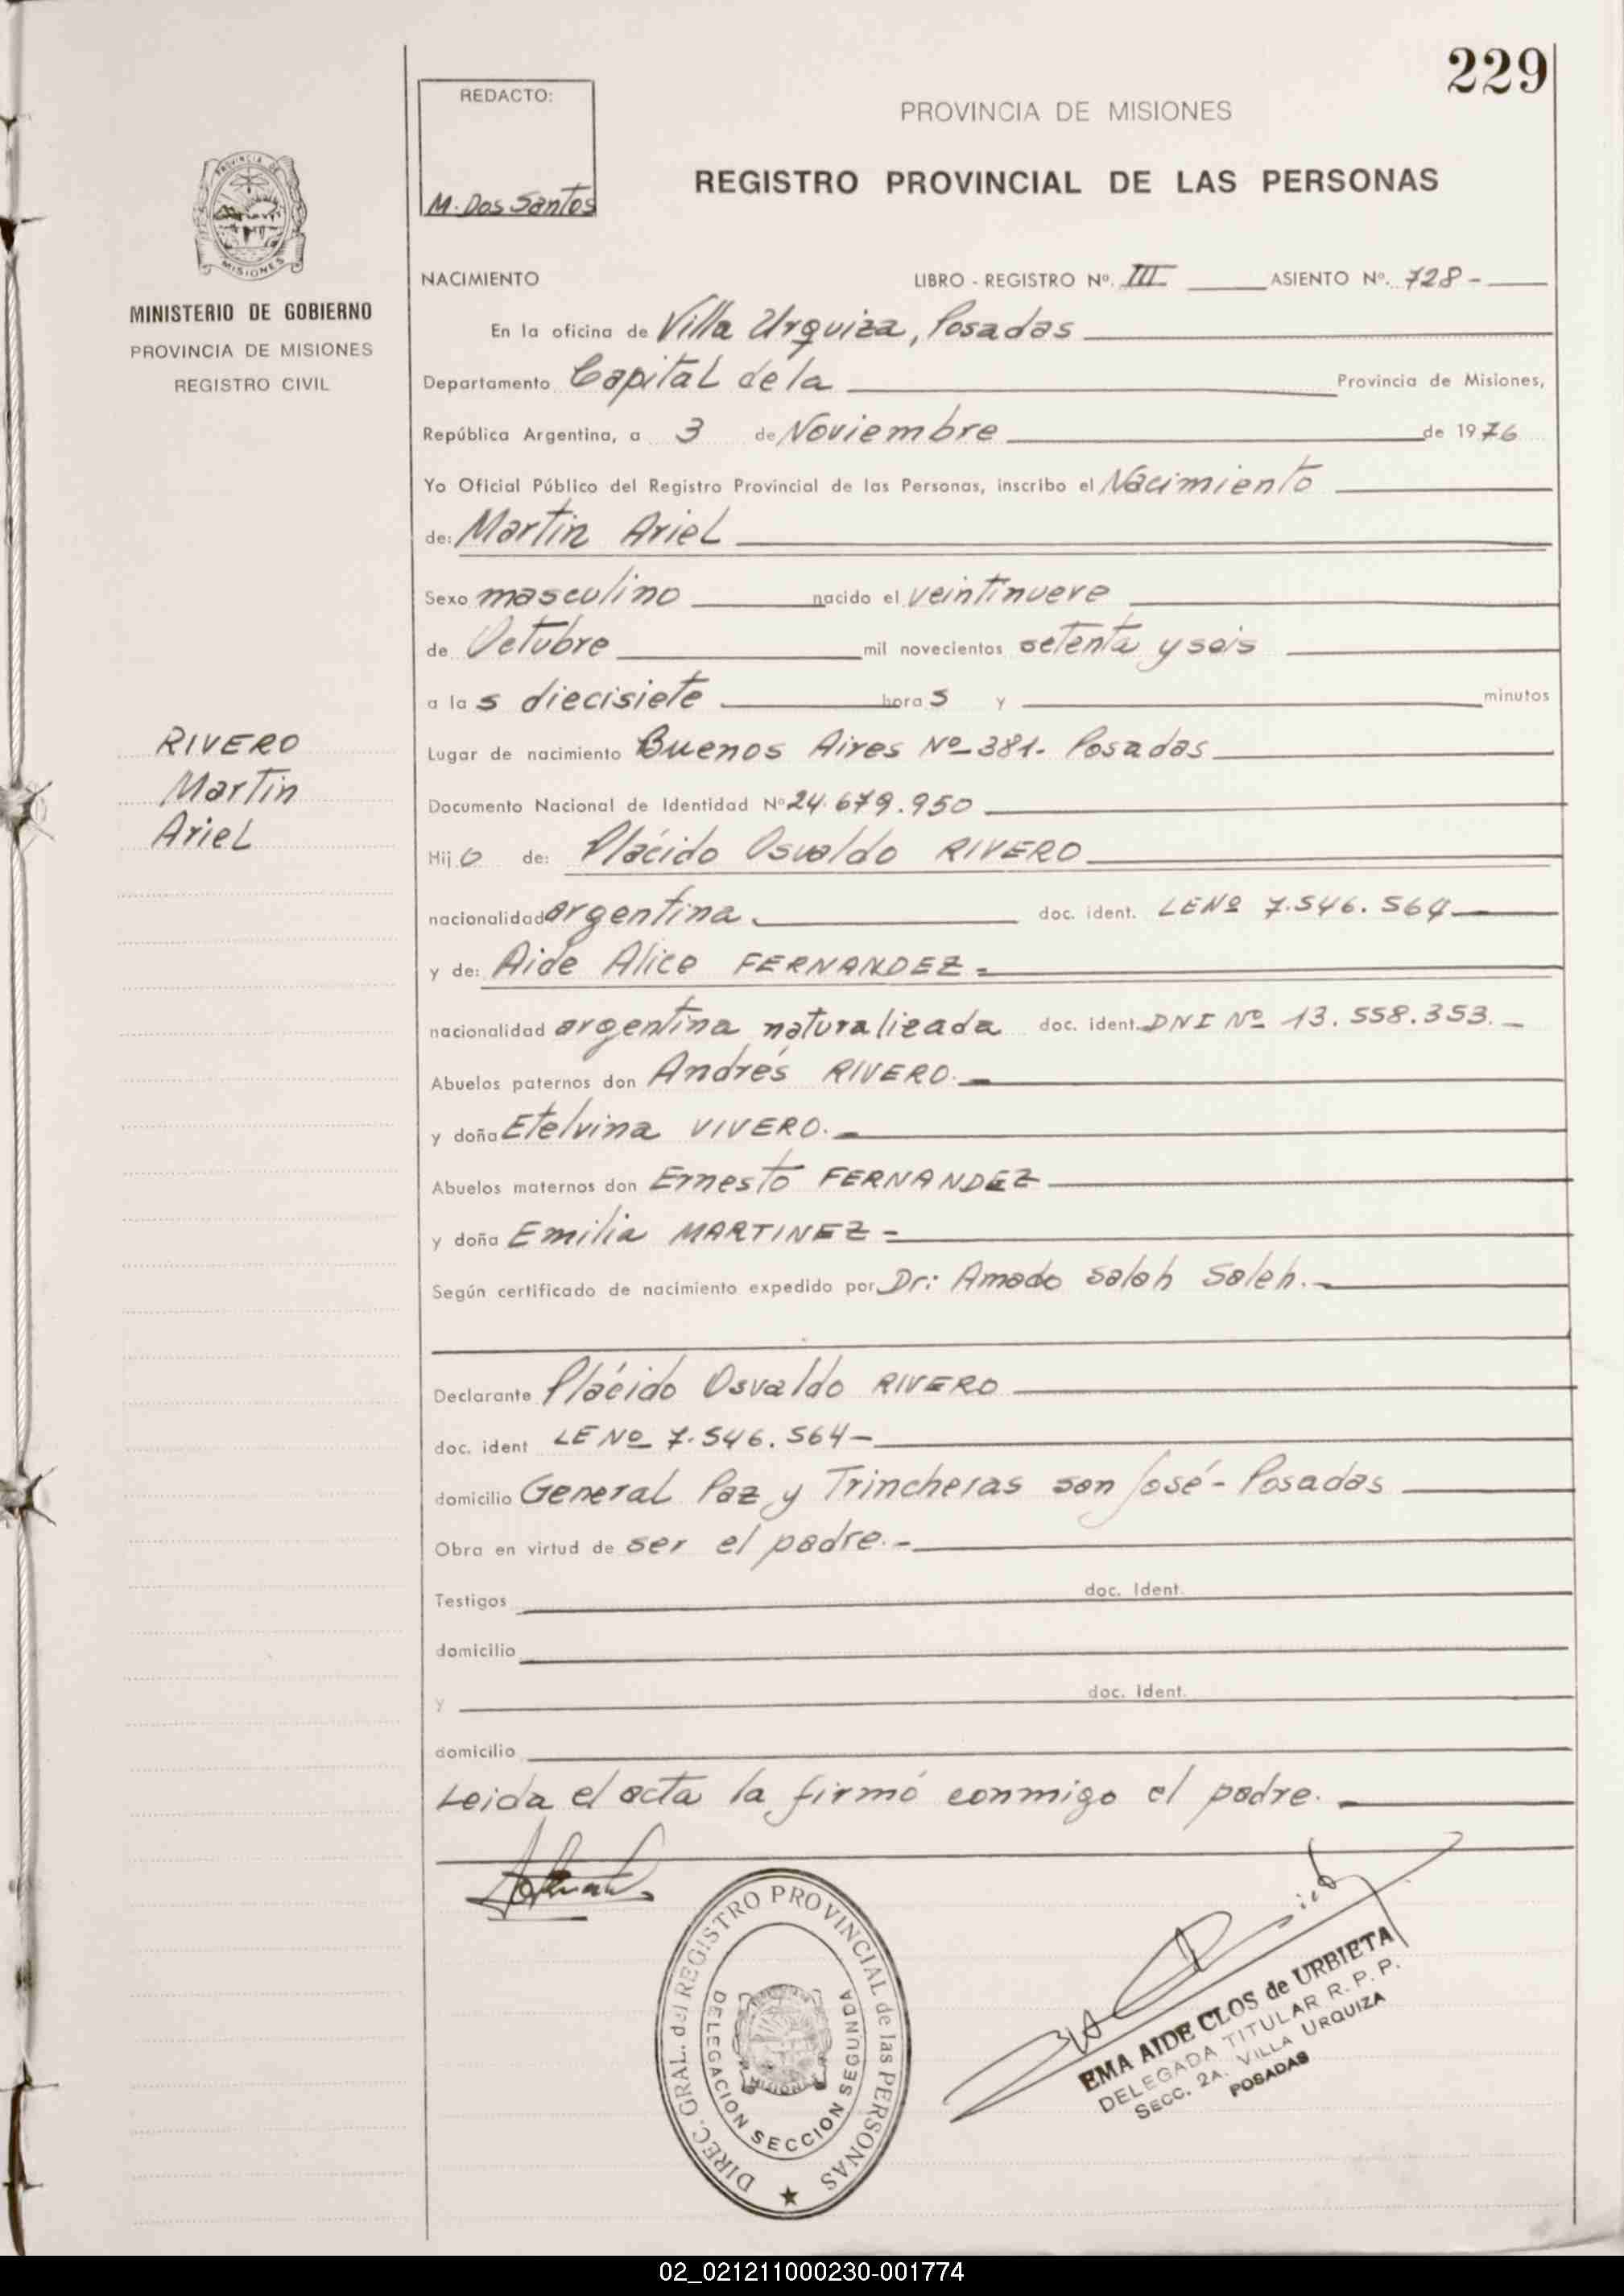 229
REDACTO:
M. Dos Santos
PROVINCIA DE MISIONES
REGISTRO PROVINCIAL DE LAS PERSONAS
PROVINCIA DE
MISIONES
MINISTERIO DE GOBIERNO
PROVINCIA DE MISIONES
REGISTRO CIVIL
NACIMIENTO LIBRO - REGISTRO Nº. III ASIENTO Nº. 728 -
En la oficina de Villa Urquiza, Posadas
Departamento Capital de la Provincia de Misiones,
República Argentina, a 3 de Noviembre de 1976
Yo Oficial Público del Registro Provincial de las Personas, inscribo el Nacimiento
de: Martin Ariel
Sexo masculino nacido el veintinueve
de Octubre mil novecientos setenta y seis
a las diecisiete horas y minutos
RIVERO
Martin
Ariel
Lugar de nacimiento Buenos Aires Nº 381- Posadas
Documento Nacional de Identidad Nº 24.679.950
Hijo de: Plácido Osvaldo RIVERO
nacionalidad argentina doc. ident. LE Nº 7.546.564
y de: Aide Alice FERNANDEZ
nacionalidad argentina naturalizada doc. ident. DNI Nº 13.558.353.
Abuelos paternos don Andrés RIVERO.
y doña Etelvina VIVERO.
Abuelos maternos don Ernesto FERNANDEZ
y doña Emilia MARTINEZ
Según certificado de nacimiento expedido por Dr: Amado Saleh Saleh.
Declarante Plácido Osvaldo RIVERO
doc. ident LE Nº 7.546.564
domicilio General Paz y Trincheras san José - Posadas
Obra en virtud de ser el padre.
Testigos doc. Ident.
domicilio
y doc. ident.
domicilio
Leida el acta la firmó conmigo el padre.
DIREC. GRAL. del REGISTRO PROVINCIAL de las PERSONAS
DELEGACION SECCION SEGUNDA
EMA AIDE CLOS de URBIETA
DELEGADA TITULAR R. P. P.
SECC. 2A. VILLA URQUIZA
POSADAS
02_021211000230-001774